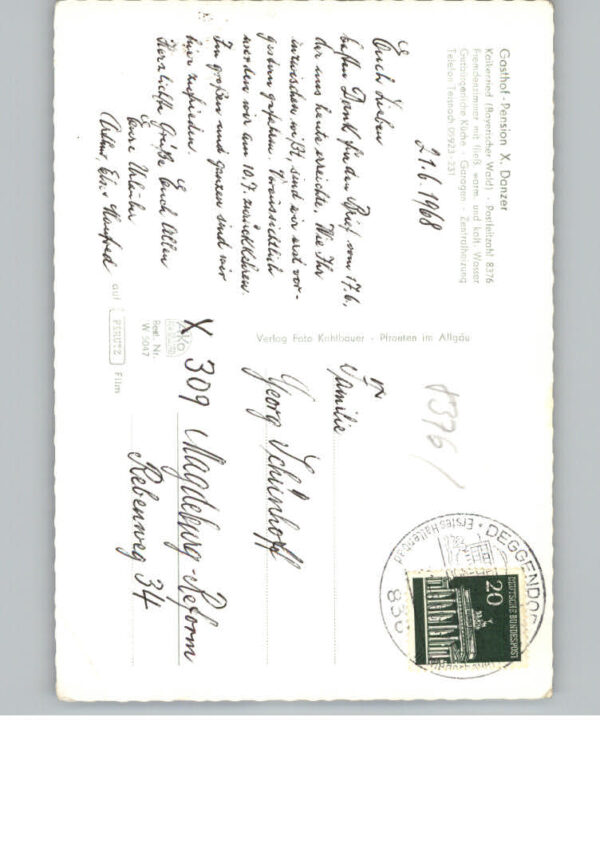 Gasthof-Pension X. Danzer
Kaikenried (Bayerischer Wald) · Postleitzahl 8376
Fremdenzimmer mit fließ. warm. und kalt. Wasser
Gutbürgerliche Küche · Garagen · Zentralheizung
Telefon Teisnach 09923-231
21.6.1968
Euch Lieben
besten Dank für den Brief vom 17.6.
der uns heute erreichte. Wie Ihr
inzwischen wißt, sind wir erst vor-
gestern gefahren. Voraussichtlich
werden wir am 10.7. zurückkehren.
Im großen und ganzen sind wir
hier zufrieden.
Herzliche Grüße Euch Allen
Eure Urlauber
Arthur, Else, Manfred
Verlag Foto Kohlbauer - Pfronten im Allgäu
AKo
Best. Nr.
W 5047
auf PERUTZ Film
8376/
Familie
Georg Schünhoff
X 309 Magdeburg-Reform
Rebenweg 34
DEGGENDOR
Erstes Hallenbad
836
20
DEUTSCHE BUNDESPOST